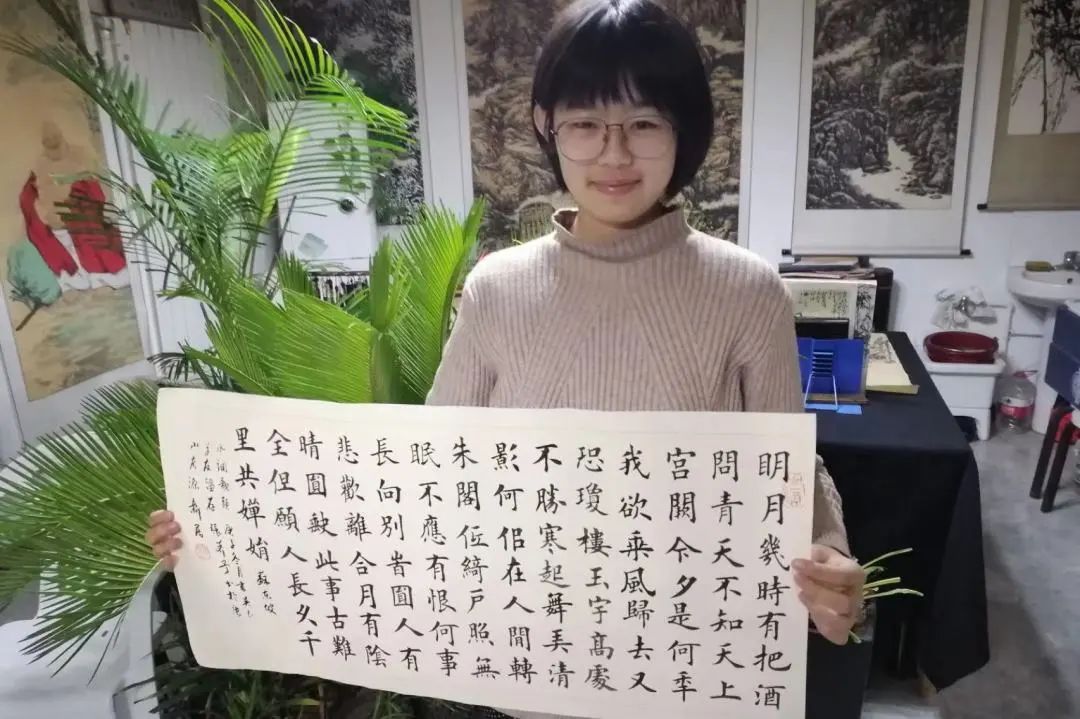 眀月幾時有把酒
問青天不知天上
宮闕今夕是何秊
我欲乘風歸去又
恐瓊樓玉宇高處
不勝寒起舞弄清
影何佀在人間轉
朱閣低綺戶照無
眠不應有恨何事
長向別旹圓人有
悲歡離合月有陰
晴圓缺此事古難
全但願人長久千
里共嬋娟 蘇東坡
水調歌頭 庚子冬月書